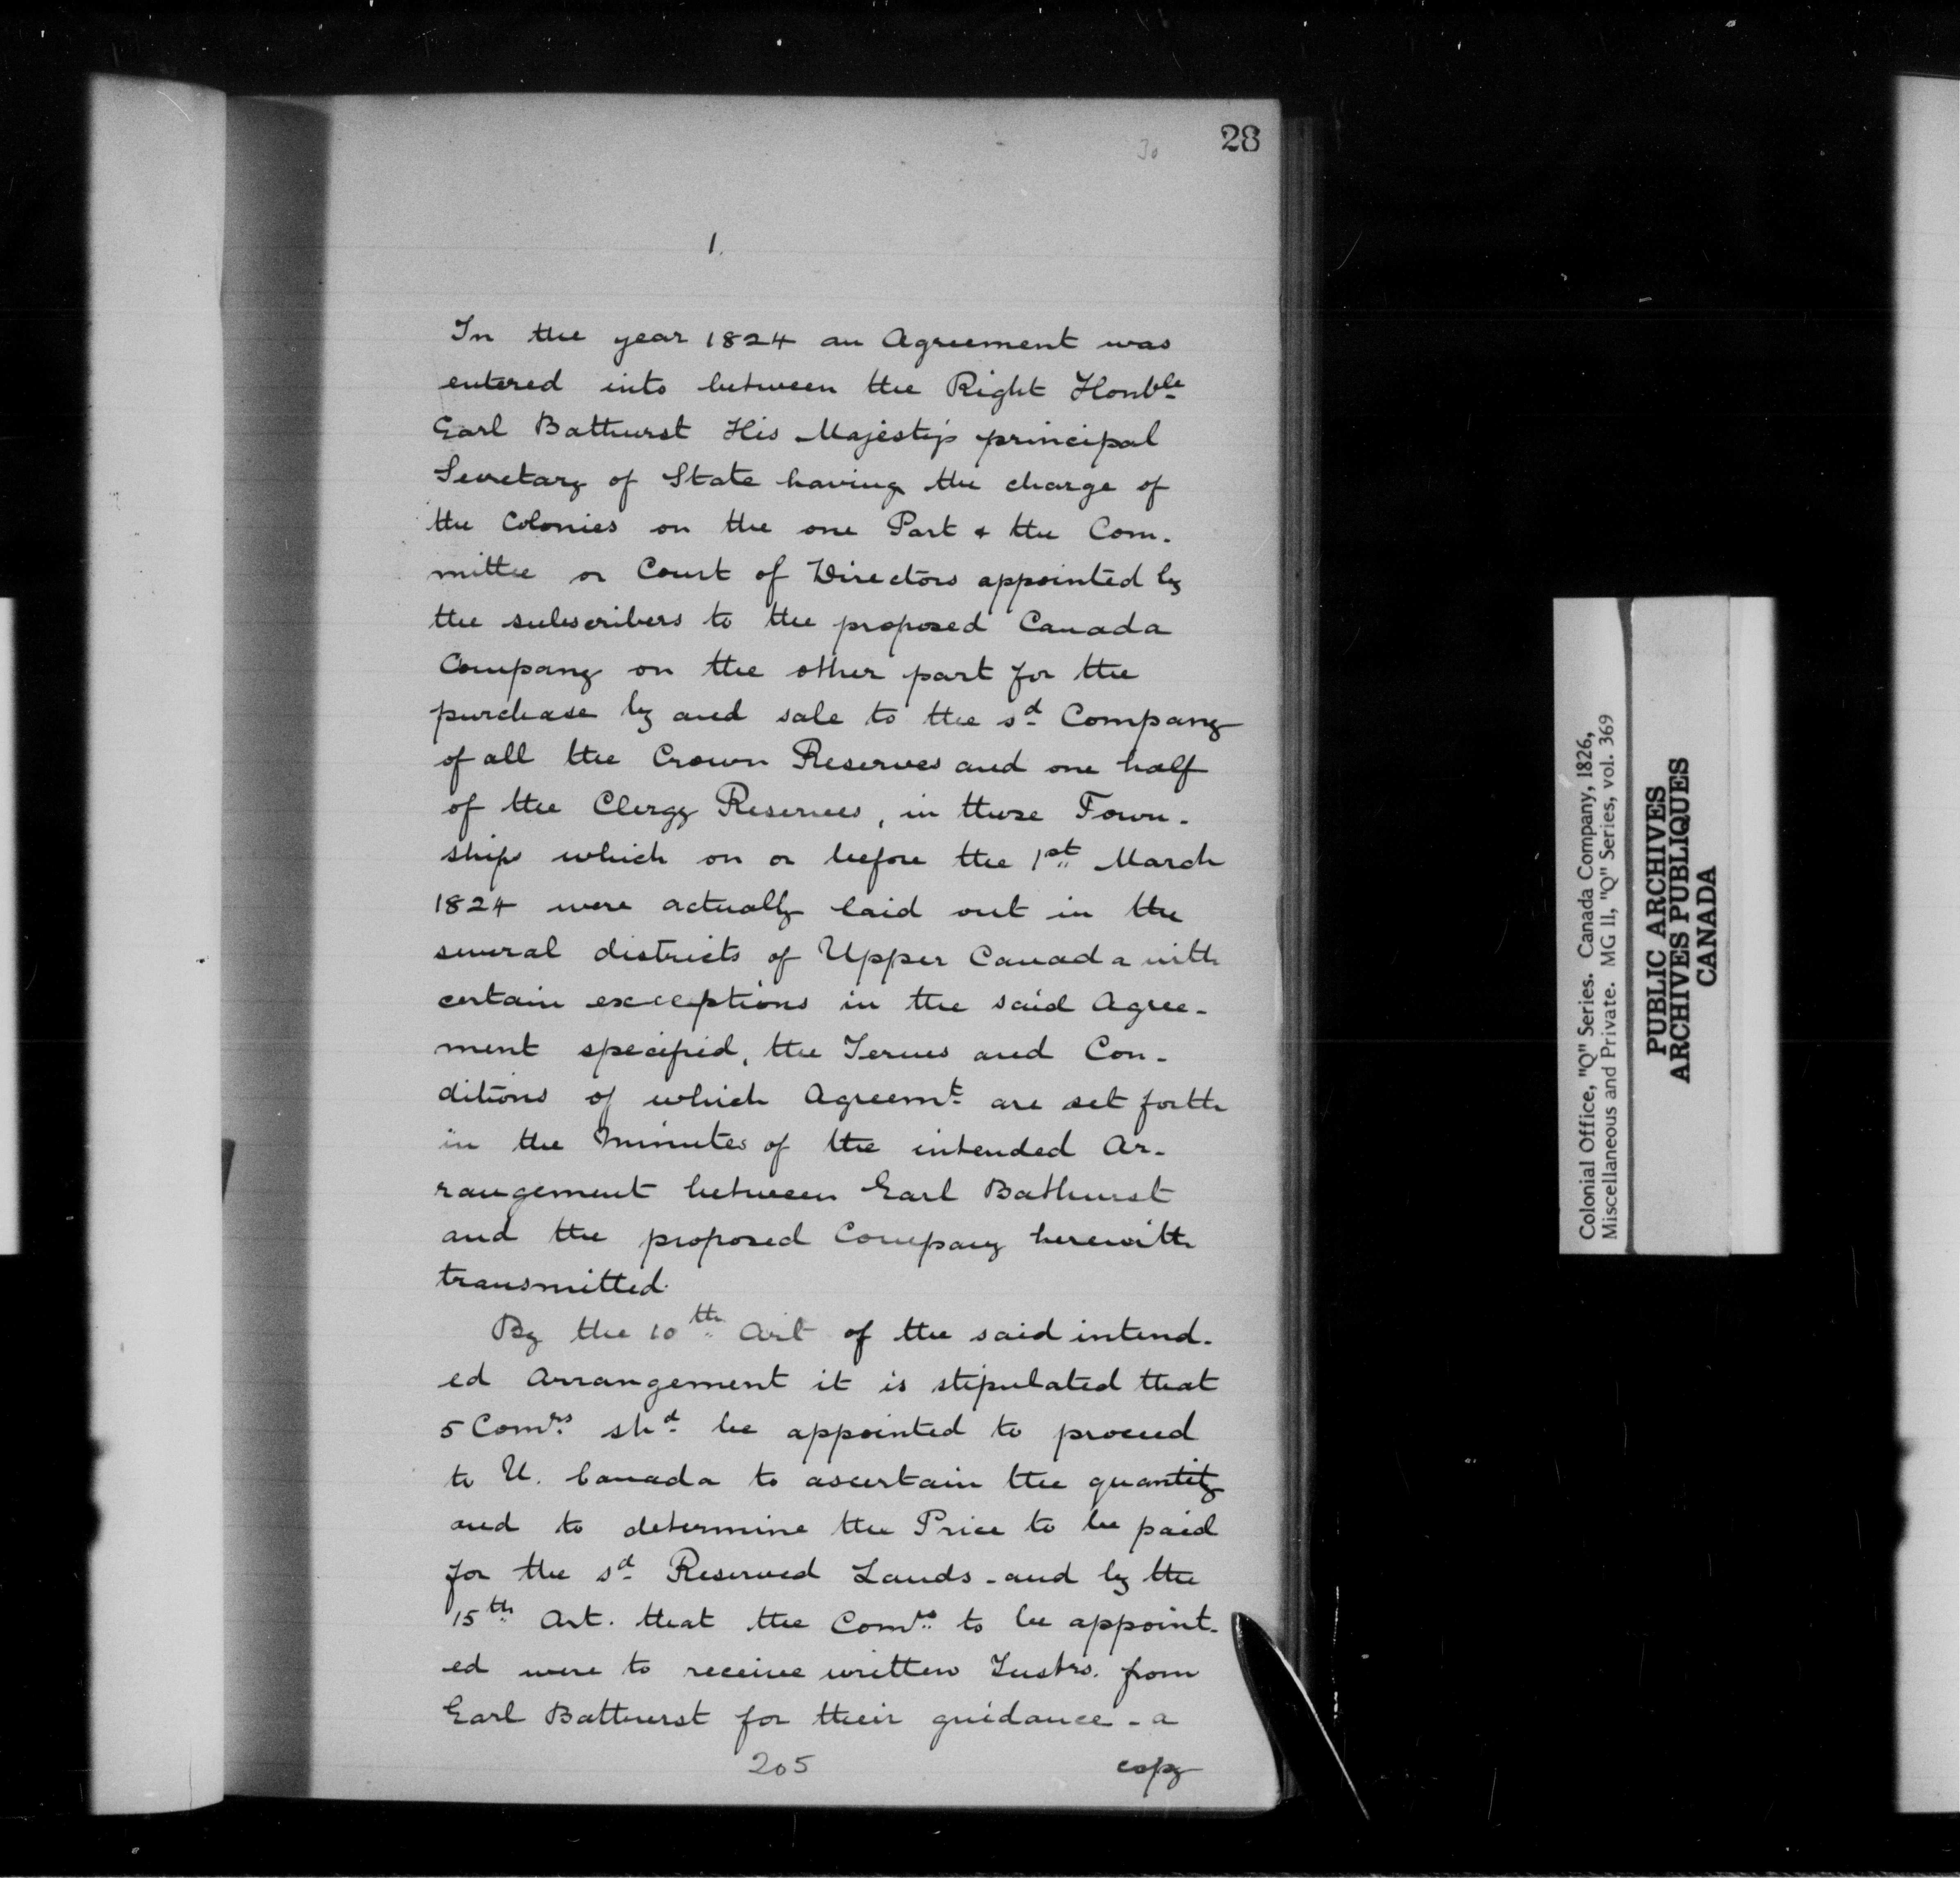 28
30
1.
In the year 1824 an Agreement was
entered into between the Right Honble
Earl Bathurst His Majesty's principal
Secretary of State having the charge of
the Colonies on the one Part & the Com-
mittee or Court of Directors appointed by
the subscribers to the proposed Canada
Company on the other part for the
purchase by and sale to the sd Company
of all the Crown Reserves and one half
of the Clergy Reserves, in those Town-
ships which on or before the 1st March
1824 were actually laid out in the
several districts of Upper Canada with
certain exceptions in the said Agree-
ment specified, the Terms and Con-
ditions of which Agreemt are set forth
in the Minutes of the intended Ar-
rangement between Earl Bathurst
and the proposed Company herewith
transmitted.
By the 10th Art of the said intend-
ed Arrangement it is stipulated that
5 Comrs shd be appointed to proceed
to U. Canada to ascertain the quantity
and to determine the Price to be paid
for the sd Reserved Lands - and by the
15th Art. that the Comrs to be appoint-
ed were to receive written Instrs. from
Earl Bathurst for their guidance - a
205
copy
Colonial Office, "Q" Series. Canada Company, 1826,
Miscellaneous and Private. MG 11, "Q" Series, vol. 369
PUBLIC ARCHIVES
ARCHIVES PUBLIQUES
CANADA